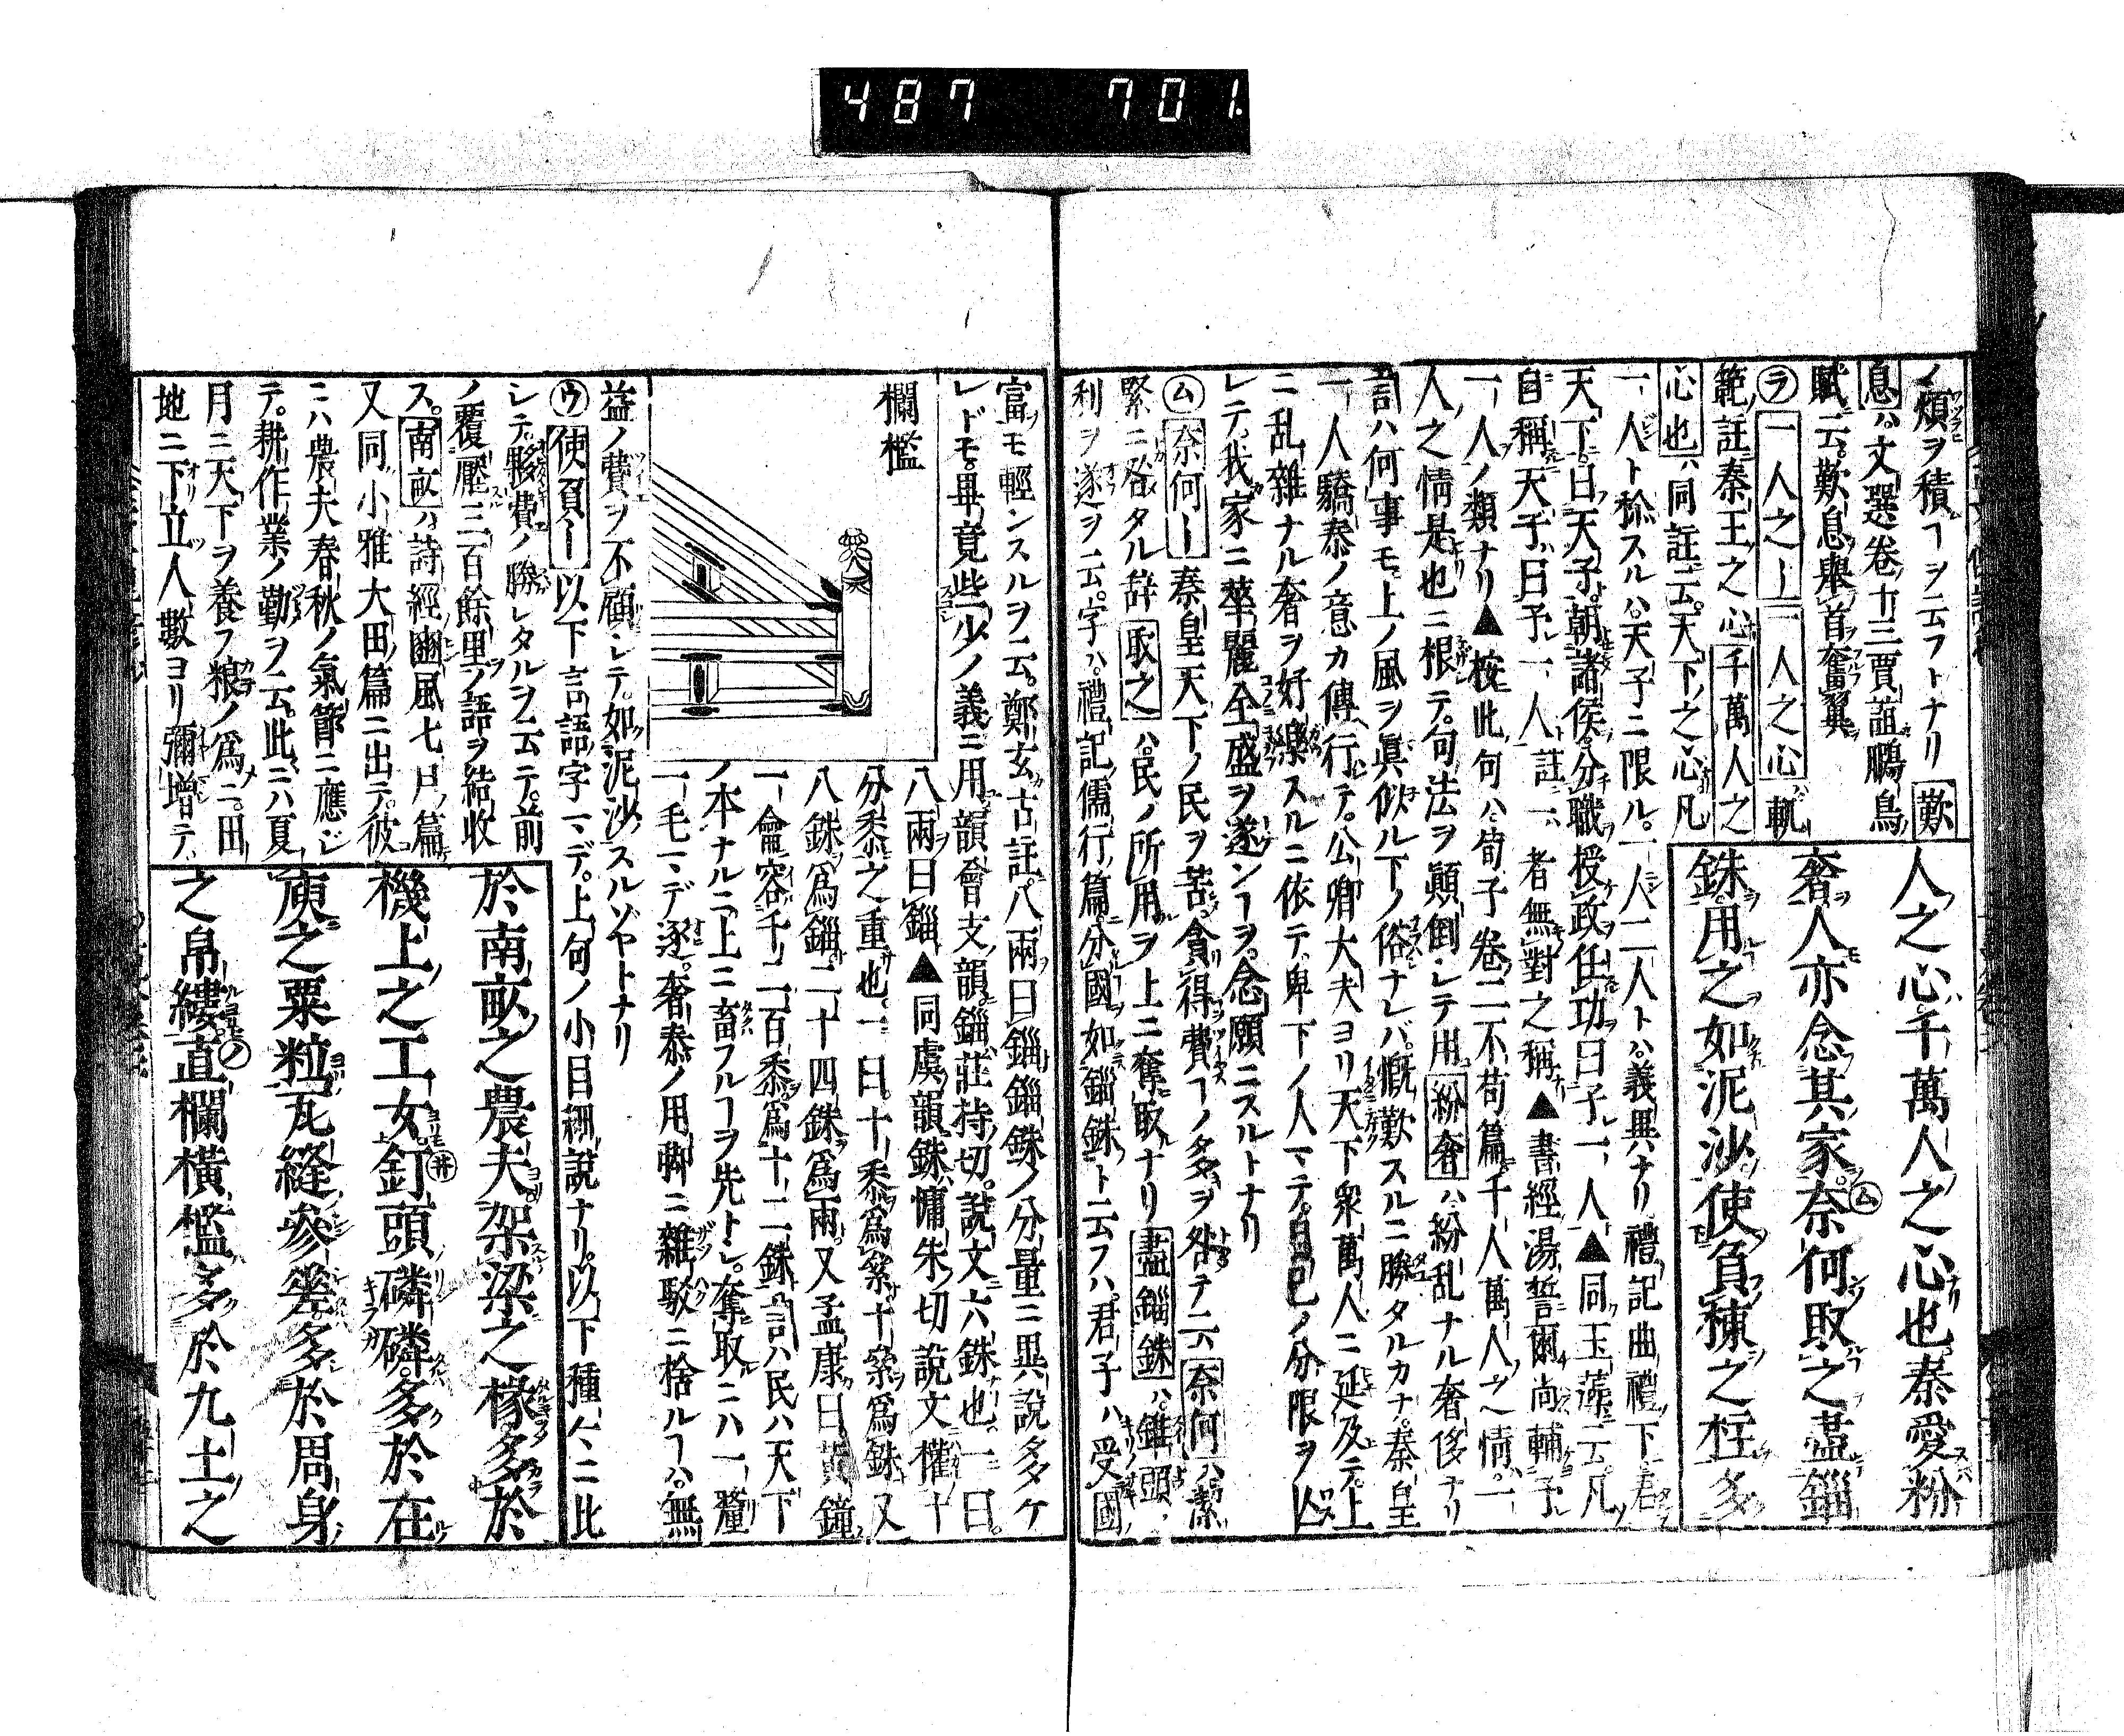 487 701
ノ煩ヲ積ヿヲ云フトナリ 歎
息ハ文選卷十三賈誼鵩鳥
賦云歎息舉首奮翼
ラ 一人之ー 一人之心 軌
範註秦王之心 千萬人之
心也ハ同註云天下之心凡
人之心千萬人之心也秦愛紛
奢人亦念其家ム奈何取之盡錙
銖用之如泥沙使負棟之柱多
一人ト称スルハ天子ニ限ル一人二人トハ義異ナリ禮記曲禮下君
天下曰天子朝諸侯分職授政任功曰予一人▲同玉藻云凡
自稱天子曰予一人註一者無對之稱▲書經湯誓爾尚輔予
一人ノ類ナリ▲按此句ハ荀子卷二不苟篇千人萬人之情一
人之情是也ニ根テ句法ヲ顛倒シテ用 紛奢ハ紛乱ナル奢侈ナリ
言ハ何事モ上ノ風ヲ眞似ル下ノ俗ナレバ慨歎スルニ勝タルカナ秦皇
一人驕泰ノ意カ傳行テ公卿大夫ヨリ天下衆萬人ニ延及テ上
ニ乱雜ナル奢ヲ好樂スルニ依テ卑下ノ人マテ自己ノ分限ヲ
レテ我家ニ華麗全盛ヲ遂ンヿヲ念願ニスルトナリ
ム 奈何ー 秦皇天下ノ民ヲ苦貪得費ヿノ多ヲ咎テ云 奈何ハ
緊ニ咎タル辞 取之ハ民ノ所用ヲ上ニ奪取ナリ 盡錙銖ハ錐頭
利ヲ遂ヲ云字ハ禮記儒行篇分國如錙銖ト云フハ君子ハ受國
富モ輕ンスルヲ云鄭玄古註八兩曰錙錙銖ノ分量ニ異說多ケ
レドモ畢竟些少ノ義ニ用韻會支韻錙莊持切說文六銖也一曰
欄檻
八兩曰錙▲同虞韻銖慵朱切說文權十
分黍之重也一曰十黍爲絫十絫爲銖又
八銖爲錙二十四銖爲兩又孟康曰黃鐘
一龠容千二百黍爲十二銖言ハ民ハ天下
ノ本ナルニ上ニ畜フルヿヲ先トシ奪取ニハ一釐
一毛マデ逐奢泰ノ用脚ニ雜駁ニ捨ルヿハ無
益ノ費ヲ不顧シテ如泥沙スルゾヤトナリ
ウ 使負ー 以下言語字マデ上句ノ小目細說ナリ以下種々ニ比
レテ夥費ノ勝レタルヲ云テ前
ノ覆壓三百餘里ノ語ヲ結收
ス 南畝ハ詩經豳風七月篇
又同小雅大田篇ニ出テ彼
ニハ農夫春秋ノ氣節ニ應ジ
テ耕作業ノ勤ヲ云此ニハ夏
月ニ天下ヲ養フ粮ノ爲ニ田
地ニ下立人數ヨリ彌增テ
於南畝之農夫架梁之椽多於
機上之工女井釘頭磷磷多於在
庾之粟粒瓦縫參差多於周身
之帛縷ノ直欄橫檻多於九土之